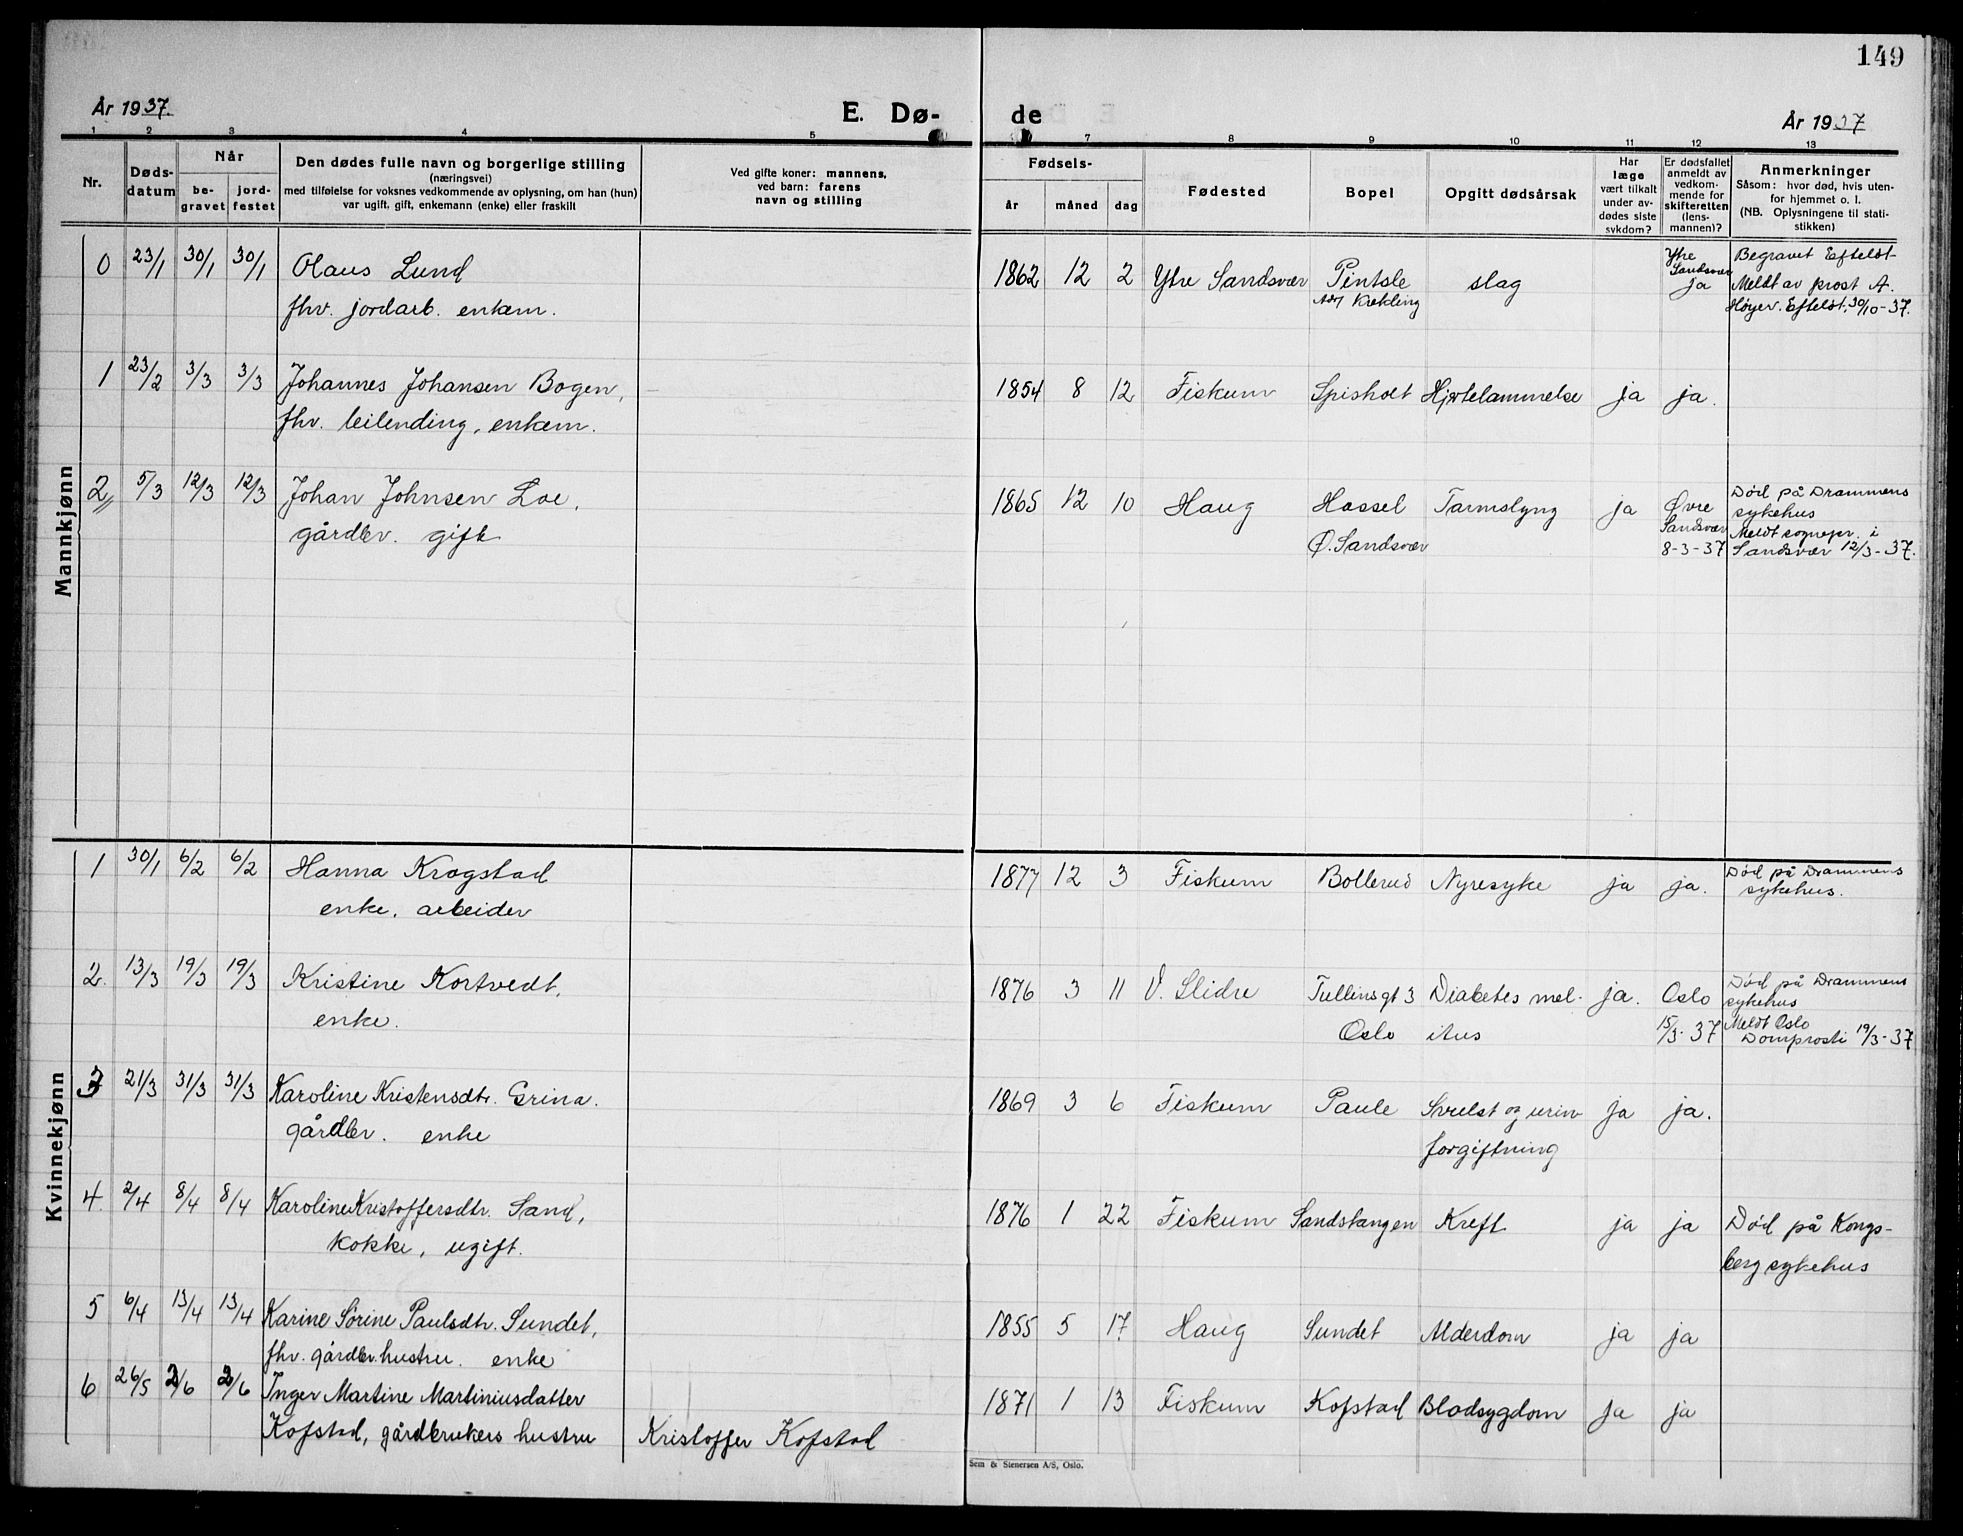 149
År 1937.
E. Dø-
de
År 1937
1 2 3 4 5 7 8 9 10 11 12 13
Nr.
Døds-
datum
Når
be-
gravet
jord-
festet
Den dødes fulle navn og borgerlige stilling
(næringsvei)
med tilføielse for voksnes vedkommende av oplysning, om han (hun)
var ugift, gift, enkemann (enke) eller fraskilt
Ved gifte koner: mannens,
ved barn: farens
navn og stilling
Fødsels-
år
måned
dag
Fødested
Bopel
Opgitt dødsårsak
Har
læge
vært tilkalt
under av-
dødes siste
sykdom?
Er dødsfallet
anmeldt av
vedkom-
mende for
skifteretten
(lens-
mannen)?
Anmerkninger
Såsom: hvor død, hvis uten-
for hjemmet o. l.
(NB. Oplysningene til stati-
stikken)
Mannkjønn
0 23/1 30/1 30/1 Olaus Lund
fhv. jordarb. enkem.
1862 12 2 Ytre Sandsvær Pintsle
slag
Ytre
Sandsvær
ja
Begravet Efteløt
Meldt av prost A.
Høyer. Efteløt. 30/10-37.
1 23/2 3/3 3/3 Johannes Johansen Bogen,
fhv. leilending, enkem.
1854 8 12 Fiskum Spisholt Hjertelammelse ja ja.
2 5/3 12/3 12/3 Johan Johnsen Loe,
gårdbr. gift
1865 12 10 Haug Hassel Tarmslyng ja Øvre
Ø. Sandsvær
Sandsvær
8-3-37
Død på Drammens
sykehus
Meldt sognepr. i
Sandsvær 12/3-37.
Kvinnekjønn
1 30/1 6/2 6/2 Hanna Krogstad
enke, arbeider
1877 12 3 Fiskum Bollerud Nyresyke ja ja.
Død på Drammens
sykehus.
2. 13/3 19/3 19/3 Kristine Kortvedt,
enke.
1876 3 11 V. Slidre Tullinsgt 3 Diabetes mel- ja. Oslo
Oslo itus 15/3-37
Død på Drammens
sykehus
Meldt Oslo
Domprosti 19/3-37
3 21/3 31/3 31/3 Karoline Kristensdtr. Grina.
gårdbr. enke
1869 3 6 Fiskum Paule Svulst og urin ja ja.
forgiftning
4. 2/4 8/4 8/4 Karoline Kristoffersdtr. Sand,
kokke, ugift.
1876 1 22 Fiskum Sandstangen Kreft ja ja
Død på Kongs-
berg sykehus
5 6/4 13/4 13/4 Karine Sørine Paulsdtr. Sundet,
fhv. gårdbr. hustru. enke
1855 5 17 Haug Sundet Alderdom ja ja
6 26/5 2/6 2/6 Inger Martine Martiniusdatter
Kofstad, gårdbrukers hustru Kristoffer Kofstad
1871 1 13 Fiskum Kofstad Blodsygdom ja ja
Sem & Stenersen A/S, Oslo.